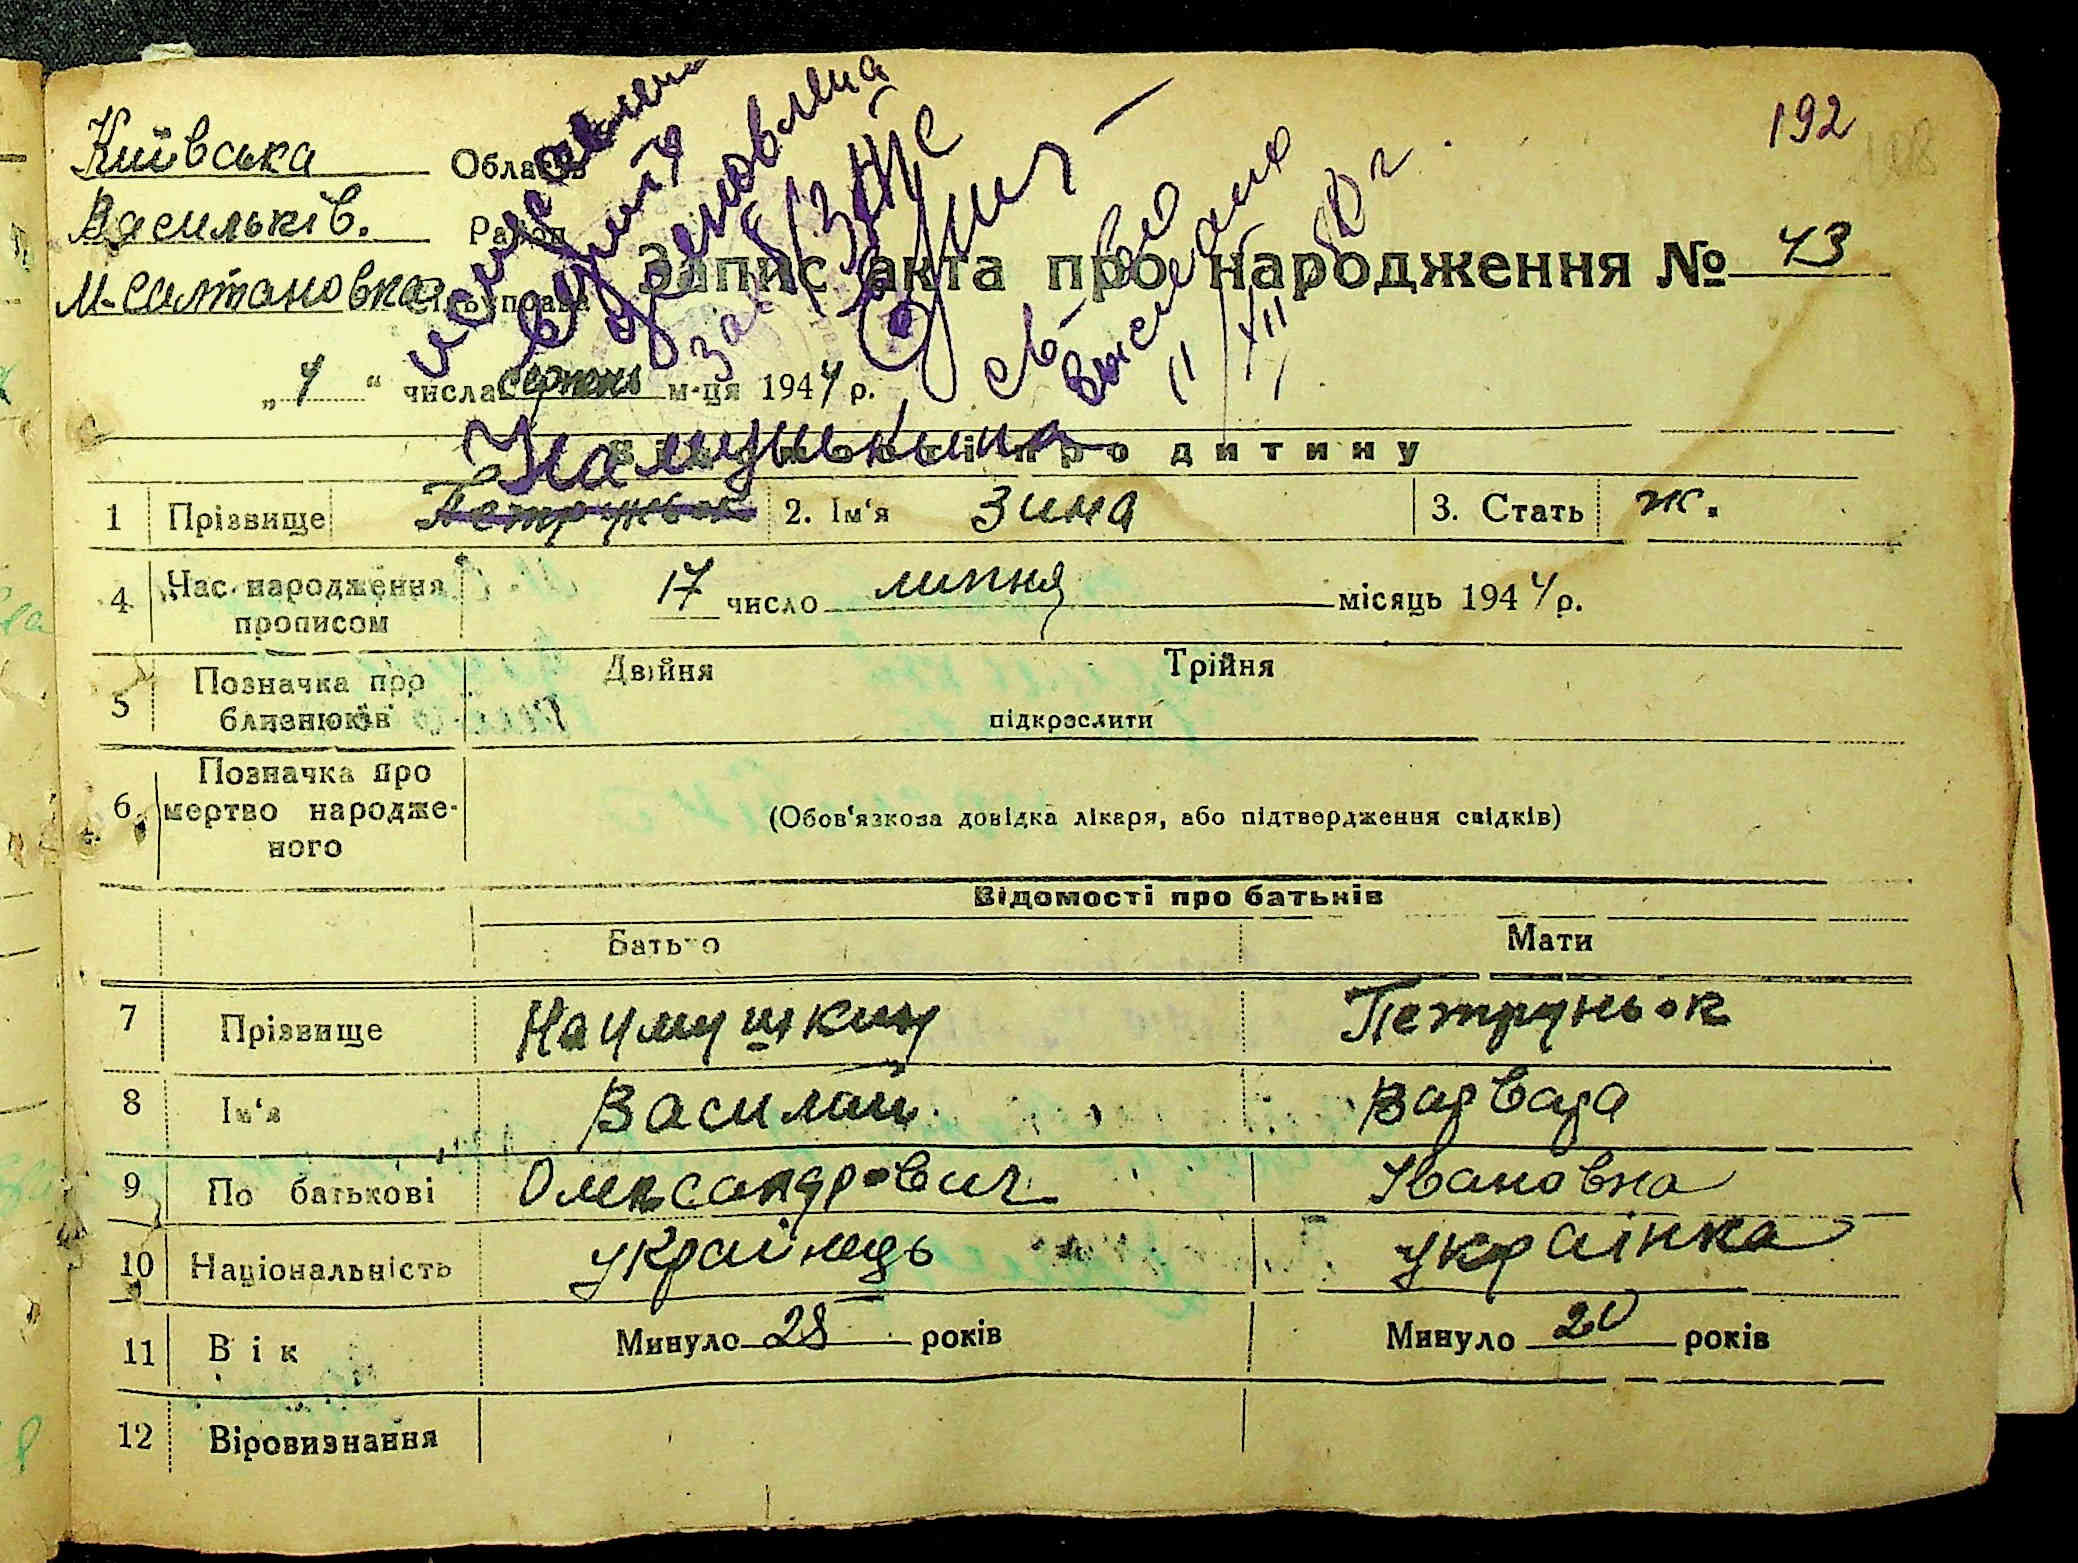 192
Київська Область
Васильків. Район
М-Салтановка Сільуправа
Запис акта про народження № 43
исправлена
„4“ числа серпень м-ця 1944 р.
Відомості про дитину
1 Прізвище Петруньок 2. Ім'я Зина 3. Стать ж.
4 Час народження прописом 17 число липня місяць 1944 р.
5 Позначка про близнюків Двійня Трійня
підкреслити
6 Позначка про мертво народженого (Обов'язкова довідка лікаря, або підтвердження свідків)
Відомості про батьків
Батько Мати
7 Прізвище Наумушкин Петруньок
8 Ім'я Василий Варвара
9 По батькові Олександрович Івановна
10 Національність українець українка
11 Вік Минуло 28 років Минуло 20 років
12 Віровизнання